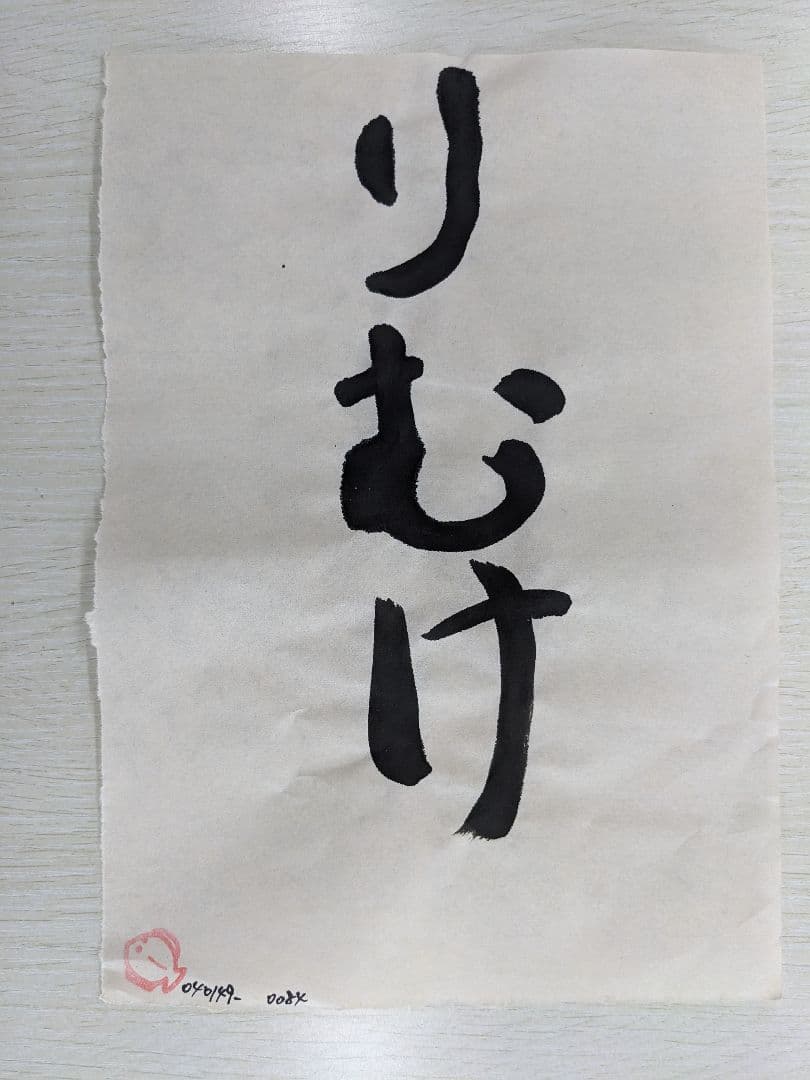 りむけ
040149- 0084